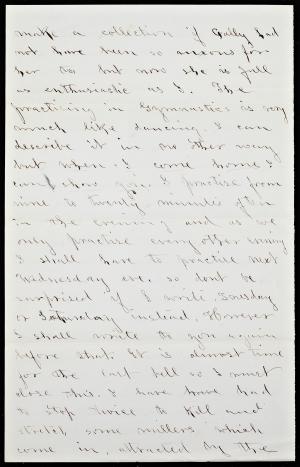 make a collection if Gally had
not have been so anxious for
her to but now she is full
as enthusiastic as I. The
practising in Gymnastics is very
much like dancing. I can
describe it in no other way
but when I come home I
can show you. I practise from
nine to twenty minutes often
in the evening and as we
only practise every other evening
I shall have to practice next
Wednesday eve. so dont be
surprised if I write Tuesday
or Saturday instead. However
I shall write to you again
before that. It is almost time
for the last bell so I must
close this. I have have had
to stop twice to kill and
stretch some millers which
come in, attracted by the